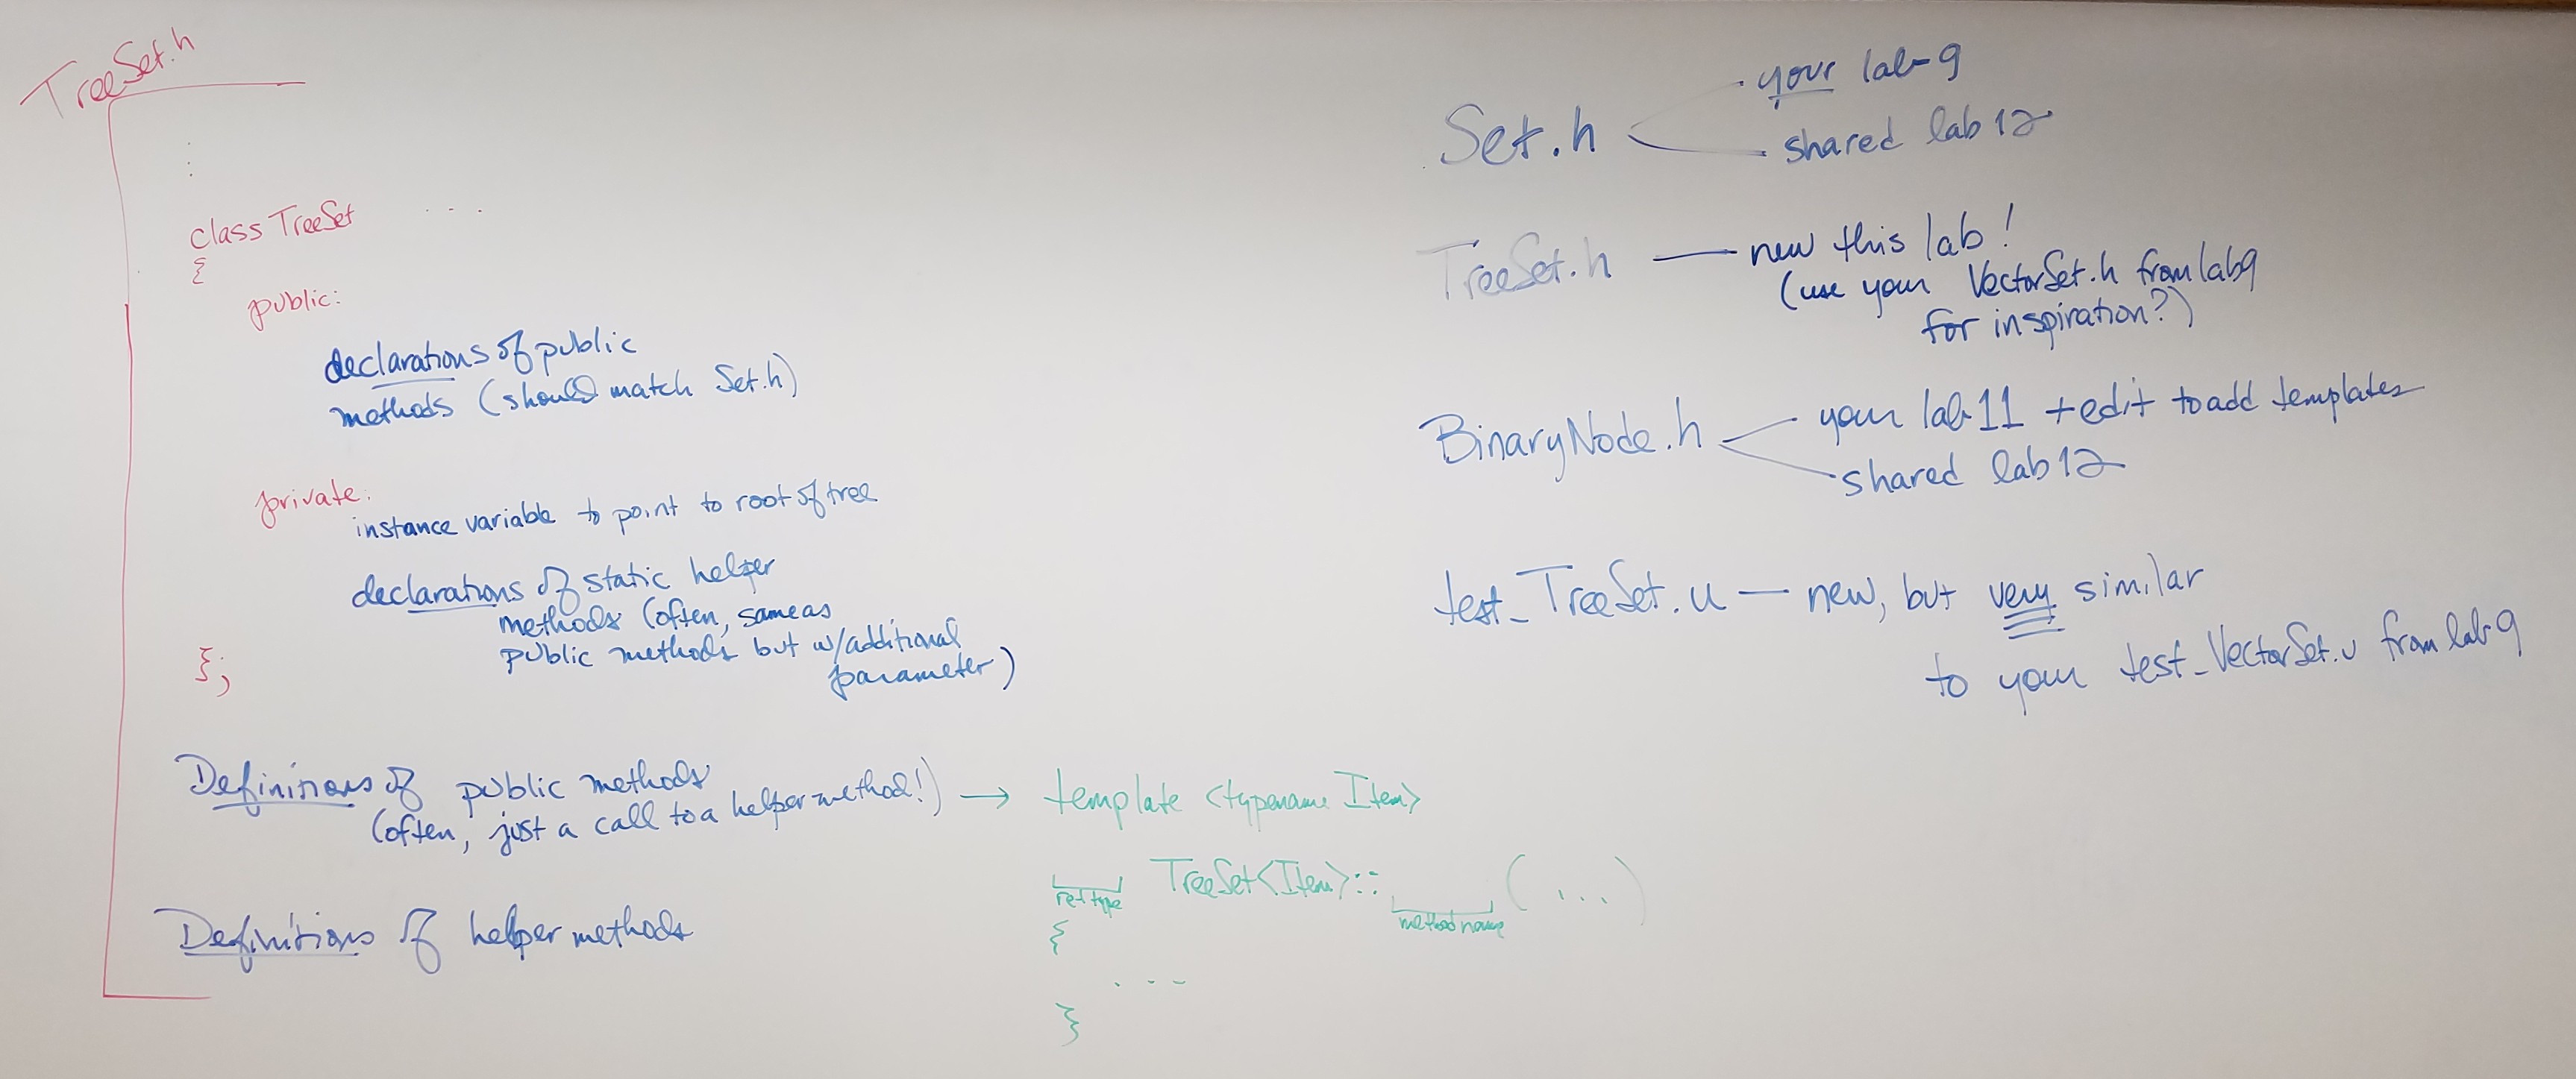 TreeSet.h
class TreeSet ...
{
public:
declarations of public
methods (should match Set.h)
private:
instance variable to point to root of tree
declarations of static helper
methods (often, same as
public methods but w/additional
parameter)
};
Definitions of public methods
(often, just a call to a helper method!) →
Definitions of helper methods
template <typename Item>
ret type TreeSet<Item>:: method name (...)
{
...
}
Set.h
your lab 9
shared lab 12
TreeSet.h — new this lab!
(use your VectorSet.h from lab 9
for inspiration?)
BinaryNode.h
your lab 11 + edit to add templates
shared lab 12
test_TreeSet.u — new, but very similar
to your test_VectorSet.u from lab 9